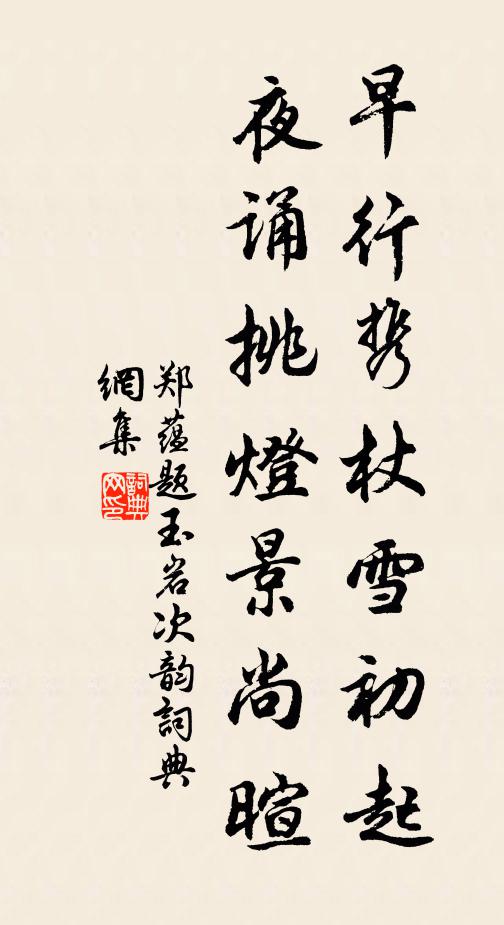 早行携杖雪初起
夜诵挑燈景尚暄
郑蕴题玉岩次韵詞典
網集
詞典
网印